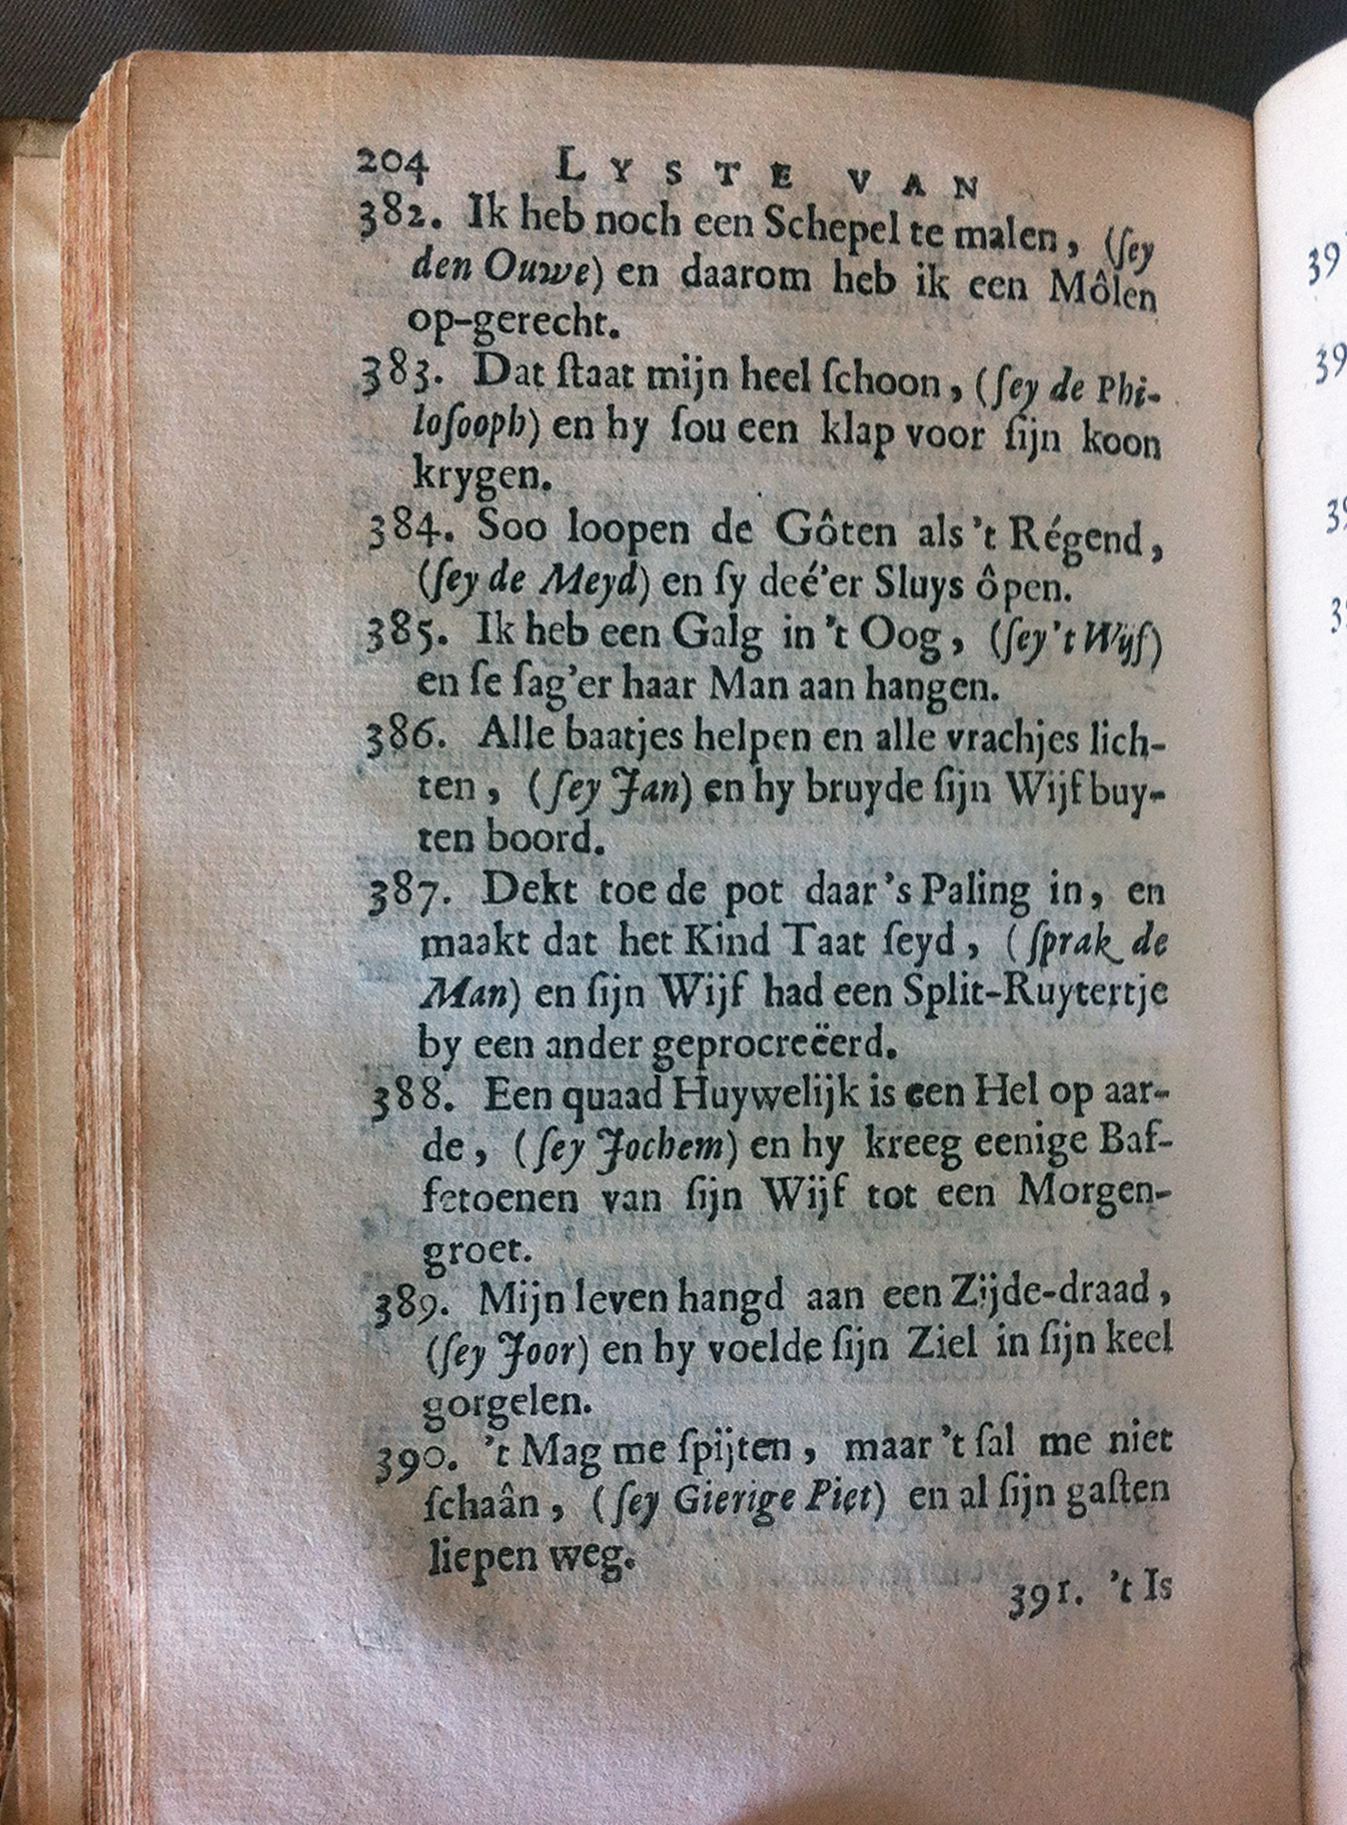 204 LYSTE VAN
382. Ik heb noch een Schepel te malen, (ſey
den Ouwe) en daarom heb ik een Môlen
op-gerecht.
383. Dat ſtaat mijn heel ſchoon, (ſey de Phi-
loſooph) en hy ſou een klap voor ſijn koon
krygen.
384. Soo loopen de Gôten als 't Régend,
(ſey de Meyd) en ſy deé'er Sluys ôpen.
385. Ik heb een Galg in 't Oog, (ſey 't Wijf)
en ſe ſag'er haar Man aan hangen.
386. Alle baatjes helpen en alle vrachjes lich-
ten, (ſey Jan) en hy bruyde ſijn Wijf buy-
ten boord.
387. Dekt toe de pot daar 's Paling in, en
maakt dat het Kind Taat ſeyd, (ſprak de
Man) en ſijn Wijf had een Split-Ruytertje
by een ander geprocreëerd.
388. Een quaad Huywelijk is een Hel op aar-
de, (ſey Jochem) en hy kreeg eenige Baf-
fetoenen van ſijn Wijf tot een Morgen-
groet.
389. Mijn leven hangd aan een Zijde-draad,
(ſey Joor) en hy voelde ſijn Ziel in ſijn keel
gorgelen.
390. 't Mag me ſpijten, maar 't ſal me niet
ſchaân, (ſey Gierige Piet) en al ſijn gaſten
liepen weg.
391. 't Is
39
39